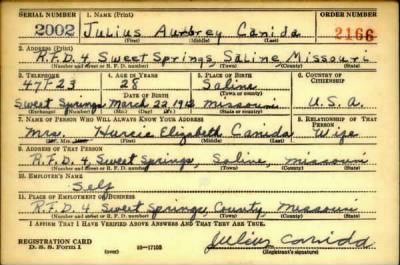 SERIAL NUMBER 1. NAME (Print) ORDER NUMBER
2002 Julius Aurbrey Canida 2166
(First) (Middle) (Last)
2. ADDRESS (Print)
R.F.D. 4 Sweet Springs Saline Missouri
(Number and street or R. F. D. number) (Town) (County) (State)
3. TELEPHONE 4. AGE IN YEARS 5. PLACE OF BIRTH 6. COUNTRY OF CITIZENSHIP
47F23 28 Saline
DATE OF BIRTH (Town or county)
Sweet Springs March 22 1912 Missouri U.S.A.
(Exchange) (Number) (Mo.) (Day) (Yr.) (State or country)
7. NAME OF PERSON WHO WILL ALWAYS KNOW YOUR ADDRESS 8. RELATIONSHIP OF THAT PERSON
Mrs. Elizabeth Canida Wife
(Mr., Mrs., Miss) (First) (Middle) (Last)
9. ADDRESS OF THAT PERSON
R.F.D. 4, Sweet Springs, Saline, Missouri
(Number and street or R. F. D. number) (Town) (County) (State)
10. EMPLOYER'S NAME
Self
11. PLACE OF EMPLOYMENT OR BUSINESS
R.F.D. 4 Sweet Springs, County, Missouri
(Number and street or R. F. D. number) (Town) (County) (State)
I AFFIRM THAT I HAVE VERIFIED ABOVE ANSWERS AND THAT THEY ARE TRUE.
REGISTRATION CARD
D. S. S. Form 1 16—17105 Julius Canida
(Registrant's signature)